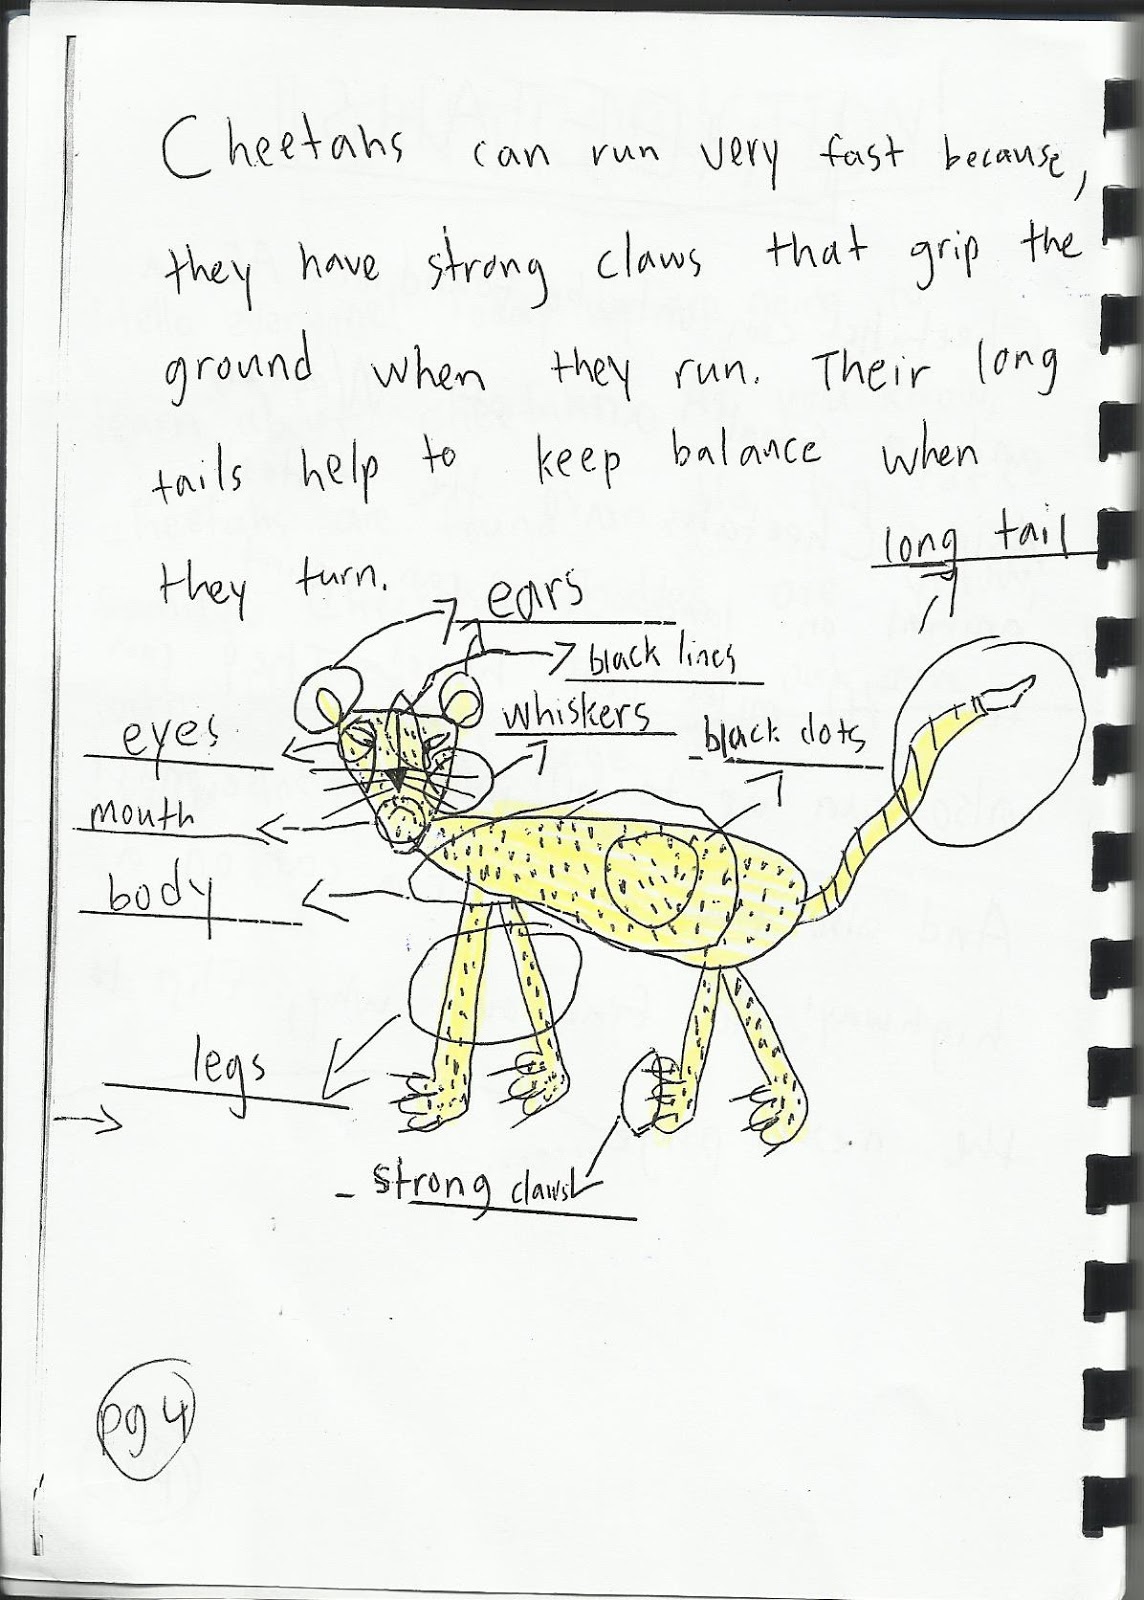 Cheetahs can run very fast because,
they have strong claws that grip the
ground when they run. Their long
tails help to keep balance when
they turn.
long tail
ears
black lines
whiskers
black dots
eyes
mouth
body
legs
strong claws
pg 4